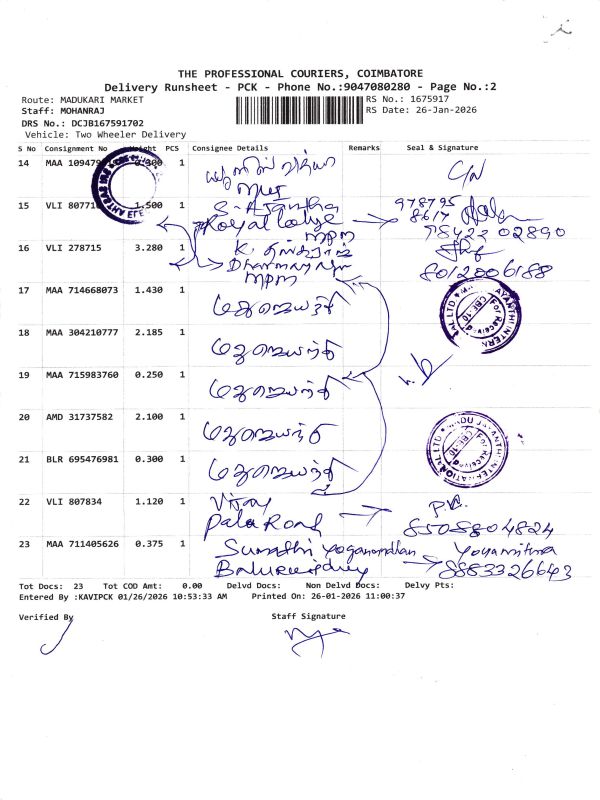 THE PROFESSIONAL COURIERS, COIMBATORE
Delivery Runsheet - PCK - Phone No.:9047080280 - Page No.:2
Route: MADUKARI MARKET RS No.: 1675917
Staff: MOHANRAJ RS Date: 26-Jan-2026
DRS No.: DCJB167591702
Vehicle: Two Wheeler Delivery
S No Consignment No Weight PCS Consignee Details Remarks Seal & Signature
14 MAA 109479 0.300 1
15 VLI 80771 1.500 1 S. Ajantha
Royal Lodge
MPM
978795
8617
98422 02890
16 VLI 278715 3.280 1 K.
MPM
8012006188
17 MAA 714668073 1.430 1 மதுஜெயந்தி
18 MAA 304210777 2.185 1 மதுஜெயந்தி
19 MAA 715983760 0.250 1 மதுஜெயந்தி
20 AMD 31737582 2.100 1 மதுஜெயந்தி
21 BLR 695476981 0.300 1 மதுஜெயந்தி
MADU JAYANTHI INTERNATIONAL LTD
For Received
CBE-10
22 VLI 807834 1.120 1 Vijay
Pala Road
8508804824
23 MAA 711405626 0.375 1 Sumathi Yoganandhan
8883326643
Tot Docs: 23 Tot COD Amt: 0.00 Delvd Docs: Non Delvd Docs: Delvy Pts:
Entered By :KAVIPCK 01/26/2026 10:53:33 AM Printed On: 26-01-2026 11:00:37
Verified By Staff Signature